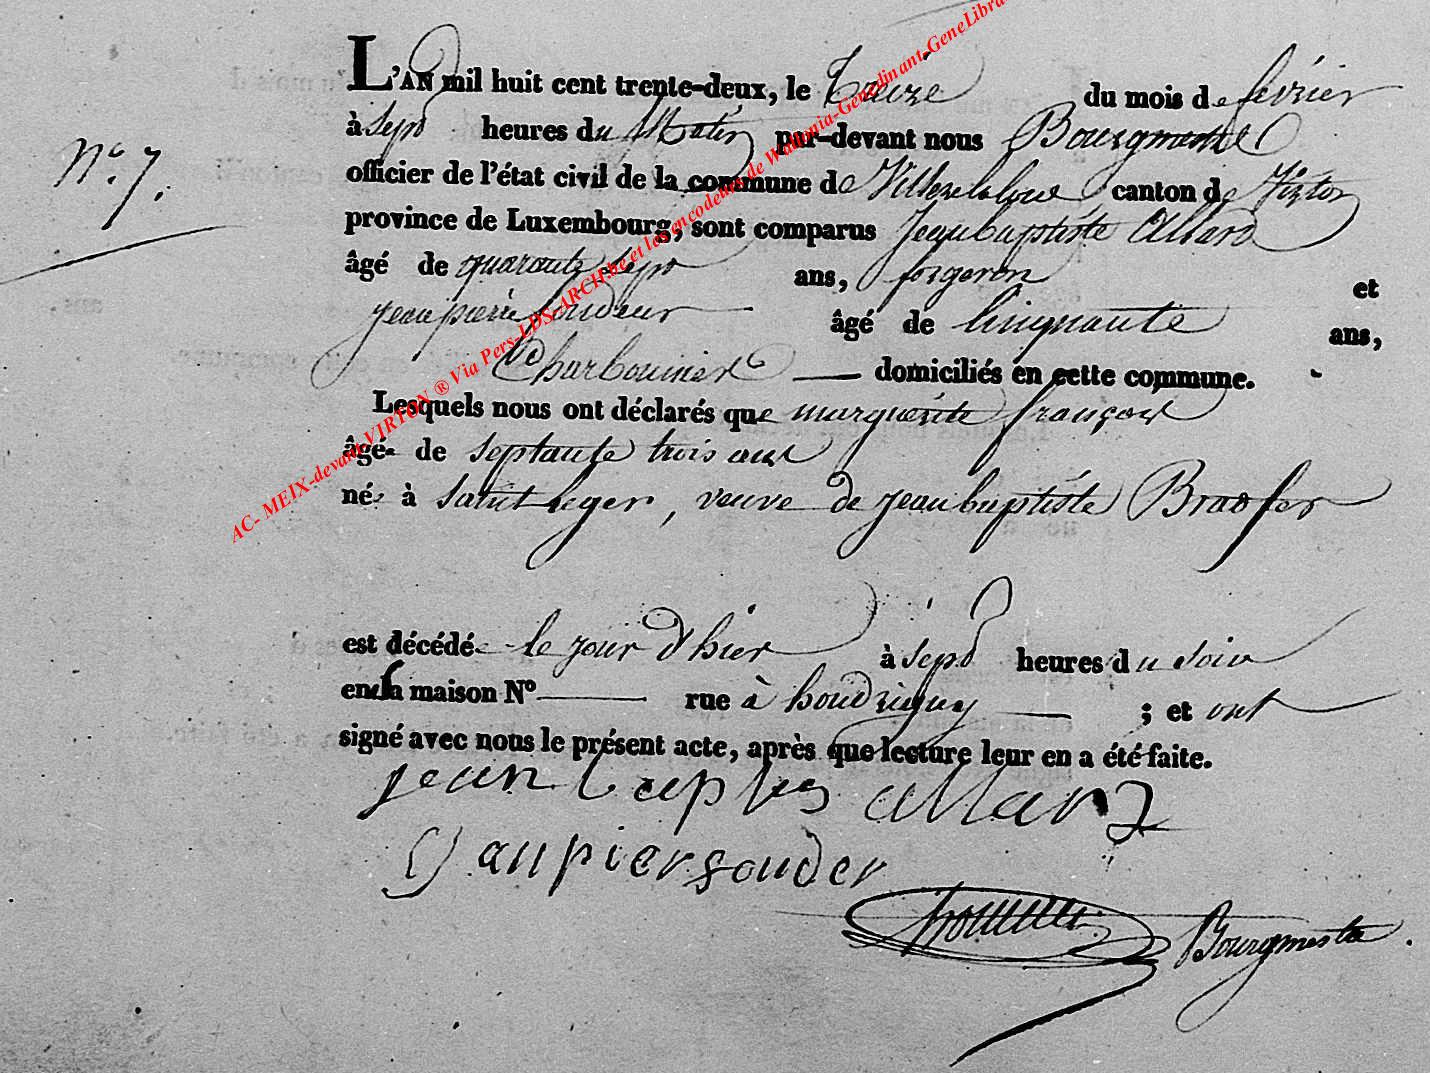 L'AN mil huit cent trente-deux, le treize du mois de févrièr
N.° 7.
à sept heures du Matin par-devant nous Bourgmestre
officier de l'état civil de la commune de Villerslaloue canton de Virton
province de Luxembourg, sont comparus Jeanbaptiste Allard
âgé de quarante sept ans, forgeron et
jeanpièrre soudeur âgé de cinquante ans,
Charbonnier domiciliés en cette commune.
Lesquels nous ont déclarés que marguerite françois
âgée de septante trois ans
née à Saint Leger, veuve de jeanbaptiste Bradfer
est décédée le jour d'hier à sept heures du soir
en sa maison N° rue à houdrigny ; et ont
signé avec nous le présent acte, après que lecture leur en a été faite.
jean baptis allard
Janpiersouder
Bourgmestre.
AC- MEIX-devant-VIRTON ® Via Pers-LDS-ARCH.be et les encodeurs de Wallonia-Genedinant-GeneLibra